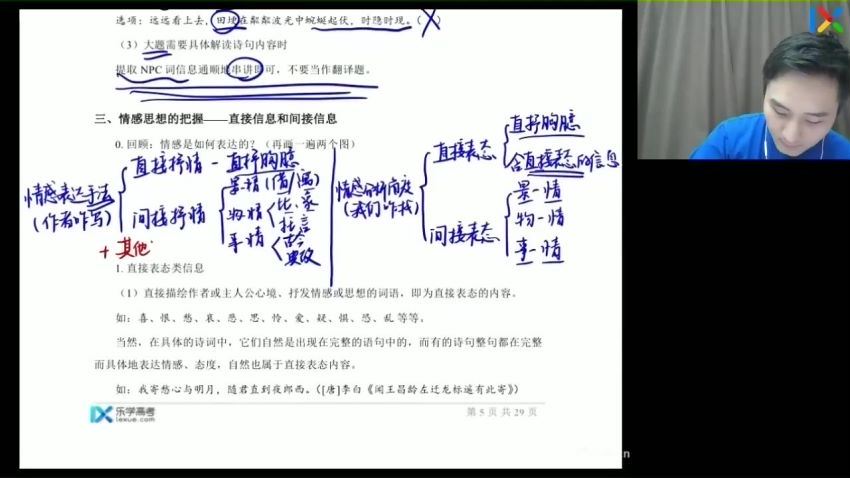 选项：远远看上去，田埂在粼粼波光中蜿蜒起伏，时隐时现。（X
（3）大题需要具体解读诗句内容时
提取 NPC 词信息通顺地串讲即可，不要当作翻译题。
三、情感思想的把握——直接信息和间接信息
0. 回顾：情感是如何表达的？（再画一遍两个图）
情感表达手法
（作者咋写）
+ 其他
直接抒情 - 直抒胸臆
间接抒情
景-情（借/寓）
物-情
比、象
托言
事-情
古今
典故
情感分析角度
（我们咋找）
直接表态
直抒胸臆
含直接表态的信息
间接表态
景-情
物-情
事-情
1. 直接表态类信息
（1）直接描绘作者或主人公心境、抒发情感或思想的词语，即为直接表态的内容。
如：喜、恨、愁、哀、悲、思、怜、爱、疑、惧、恐、乱 等等。
当然，在具体的诗词中，它们自然是出现在完整的语句中的，而有的诗句整句都在完整
而具体地表达情感、态度，自然也属于直接表态内容。
如：我寄愁心与明月，随君直到夜郎西。（[唐]李白《闻王昌龄左迁龙标遥有此寄》）
乐学高考
lexue.com
第 5 页 共 29 页